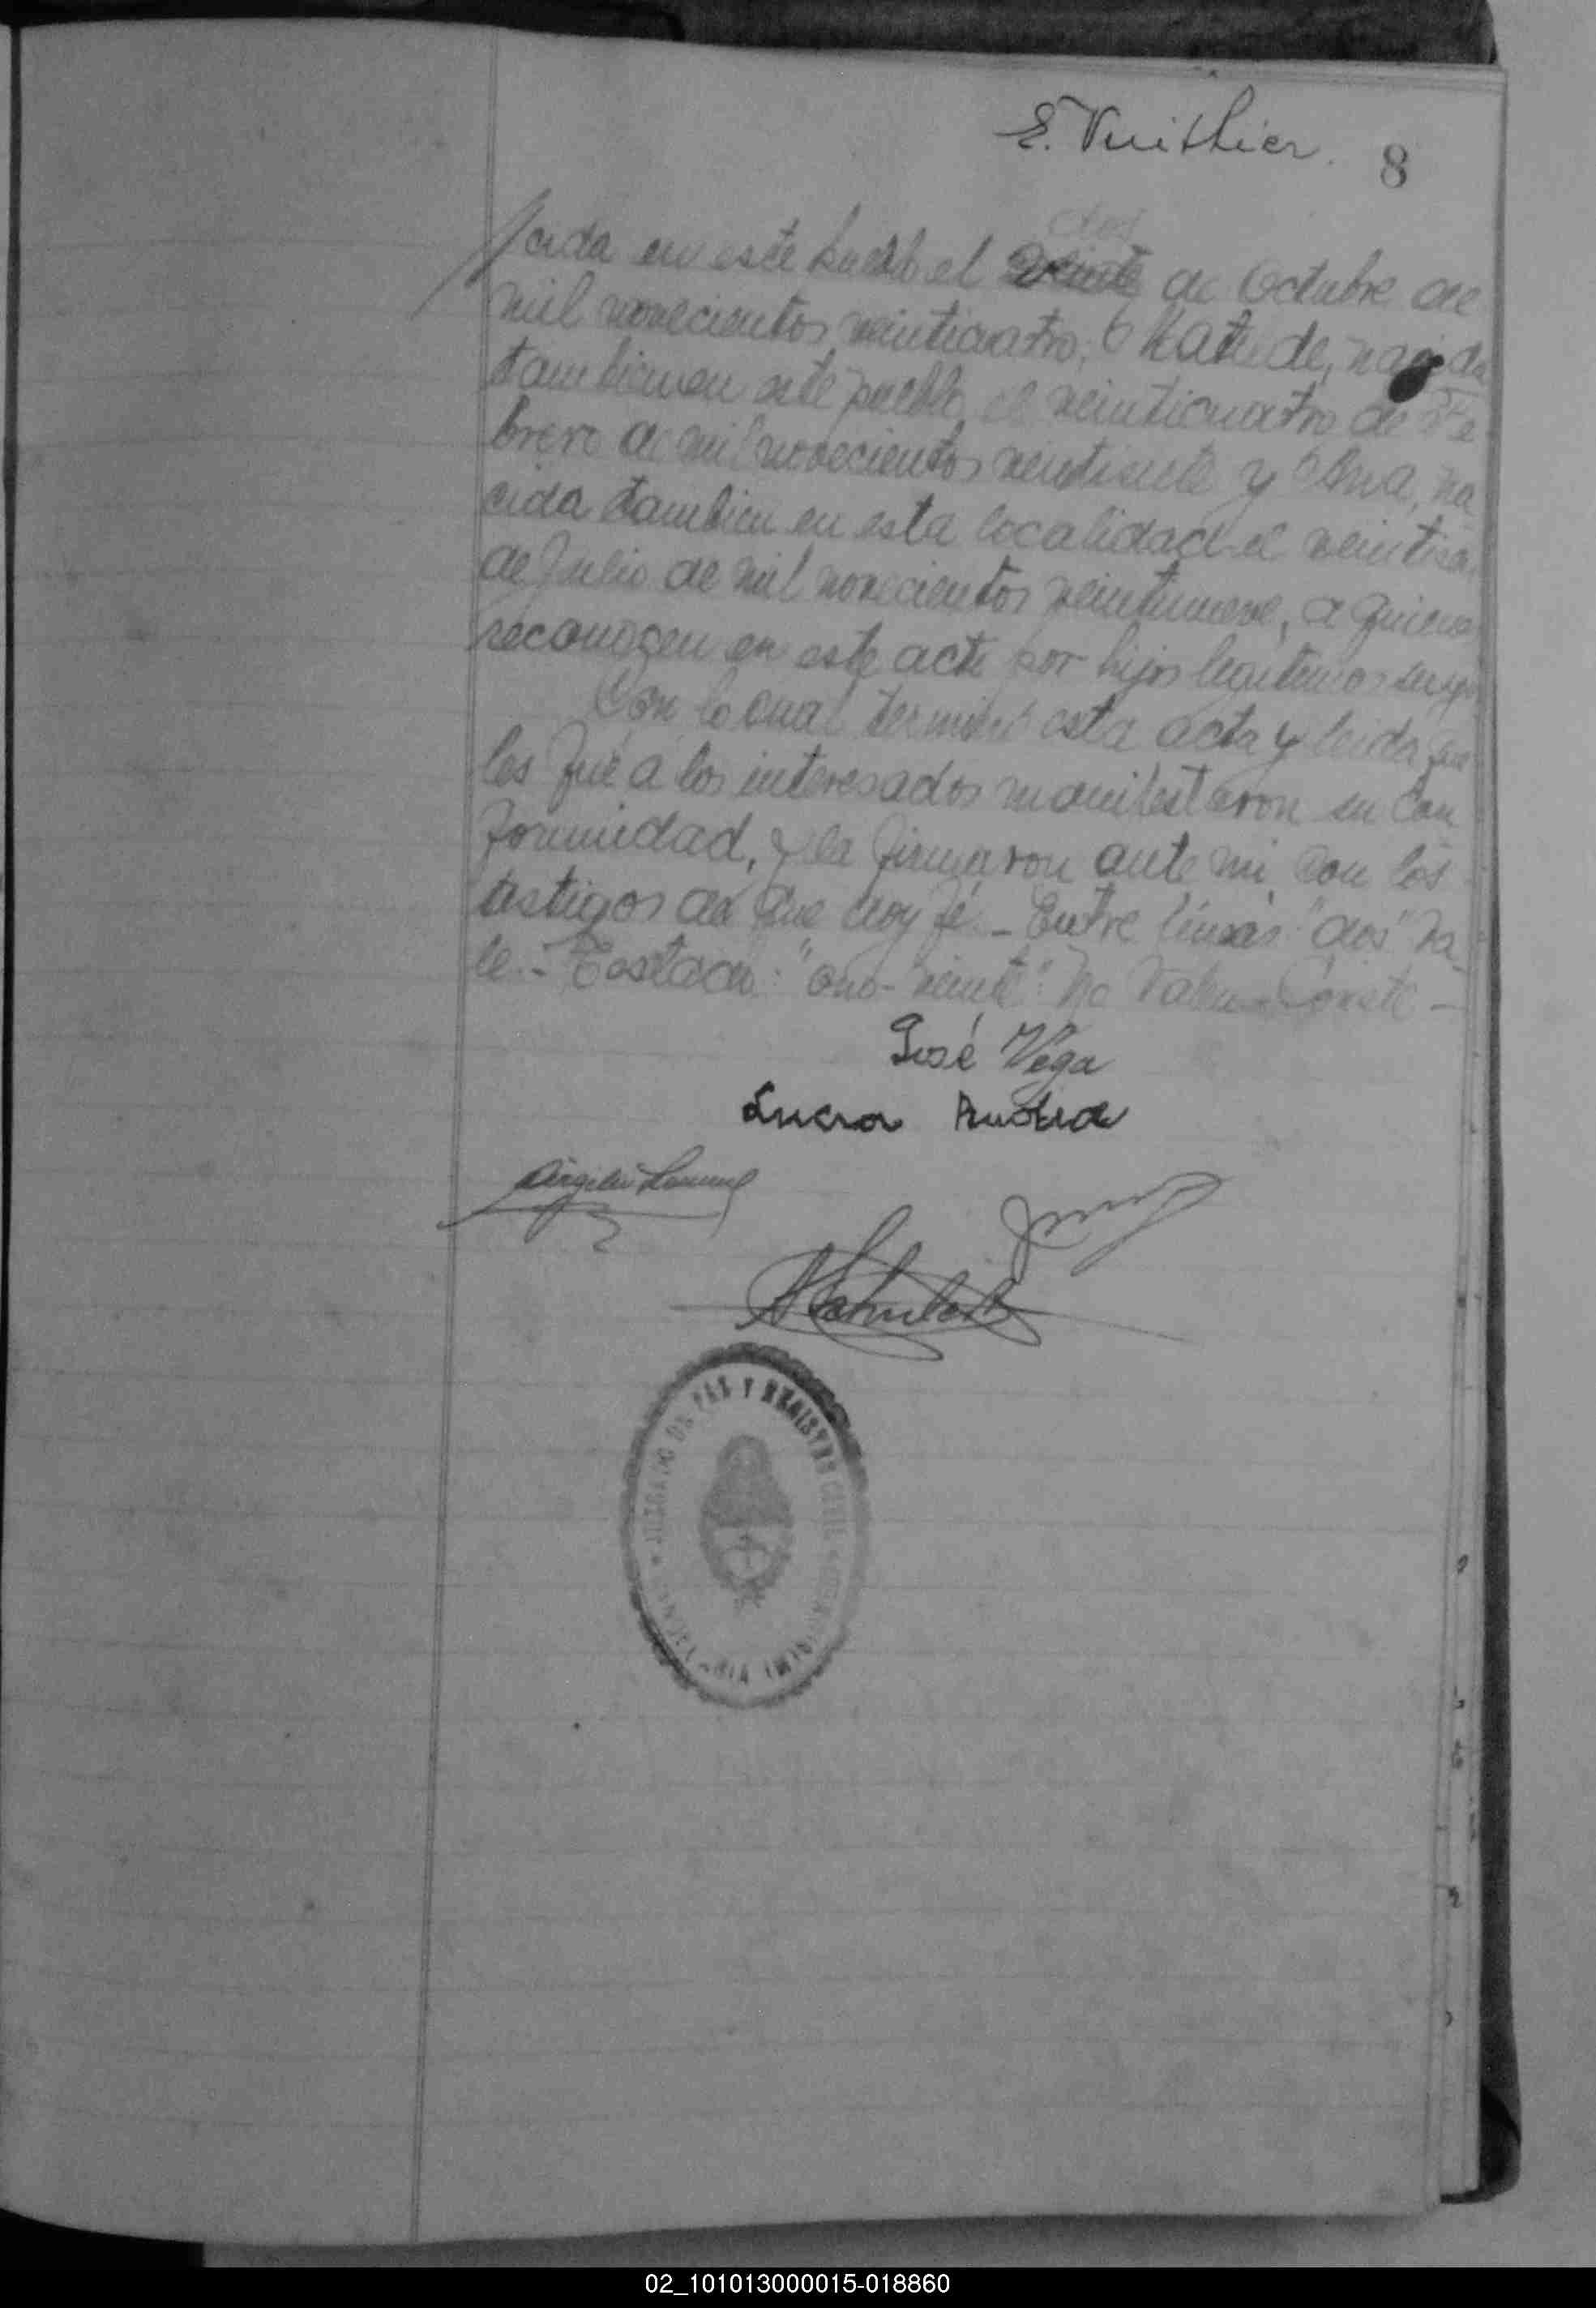 E. Vuithier.
8
dos
cida en este pueblo el veinte de Octubre de
mil novecientos veinticuatro; Matilde, nacida
tambien en este pueblo el veinticuatro de Fe
brero de mil novecientos veintisiete y Elva, na
cida tambien en esta localidad el veintiseis
de Julio de mil novecientos veintinueve, a quienes
reconocen en este acto por hijos legitimos suyos
Con lo cual terminó esta acta y leida que
les fué a los interesados manifestaron su con
formidad, y la firmaron ante mi, con los
testigos de que doy fé. - Entre líneas: "dos" Va
le. - Testado: "veinte": No Valen. Conste -
José Vega
Lucia
JUZGADO DE PAZ Y REGISTRO CIVIL
CANDELARIA (MISIONES)
02_101013000015-018860